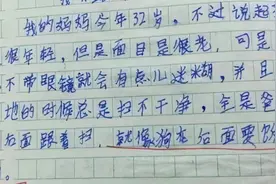 我的妈妈今年32岁,不过说起
很年轻,但是面目是很老,可是
不带眼镜就会有点儿迷糊,并且
地的时候总是扫不干净,全是爸
后面跟着扫,就像狗在后面要
。